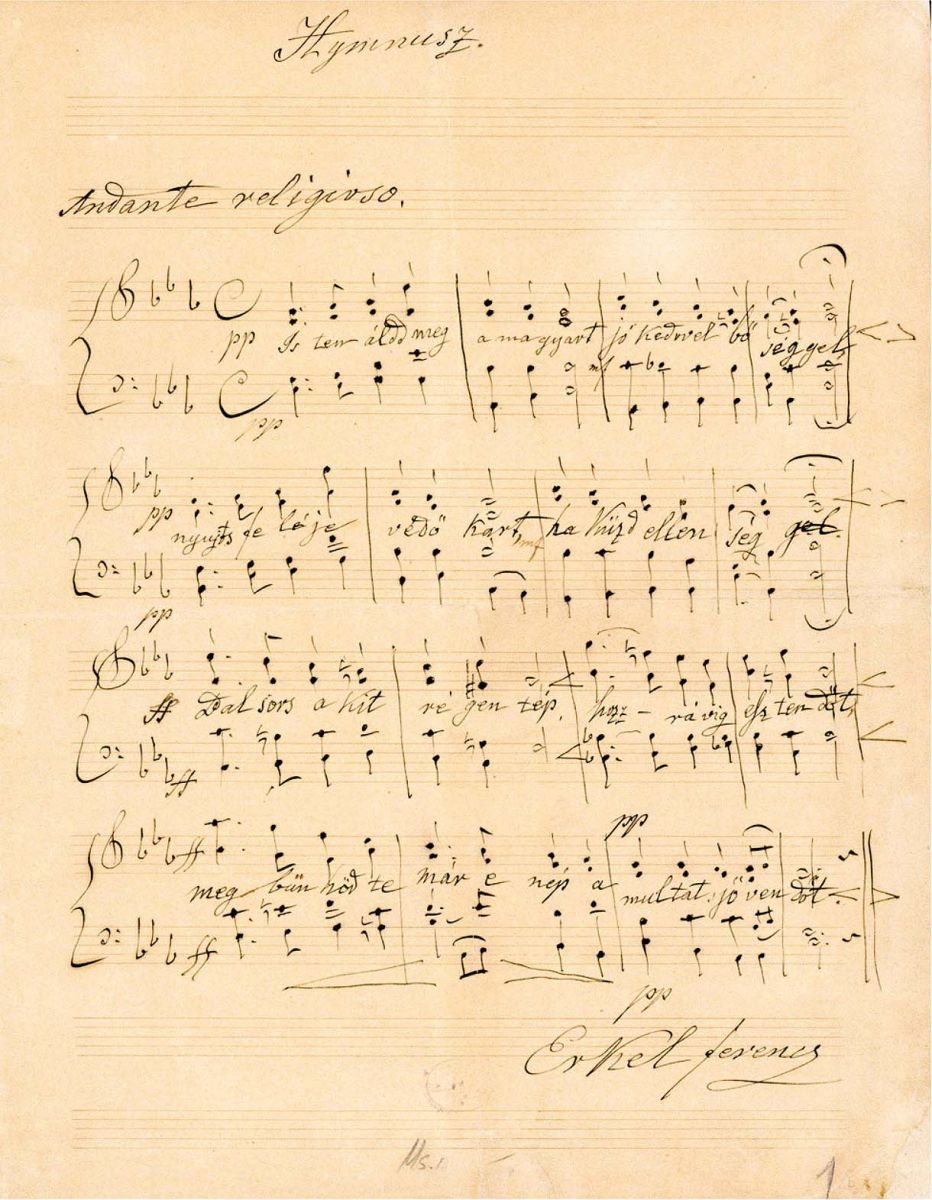 Hymnusz.
Andante religioso.
pp Is ten áldd meg a magyart jó kedvvel bő séggel,
mf
pp
pp nyujts fe léje védő kart, mf ha küzd ellen ség gel.
pp
ff Bal sors a kit ré gen tép, hozz - rá víg esz ten dőt,
ff
pp
ff meg bün hőd te már e nép a multat s jö ven dőt.
ff
pp
Erkel ferencz
Ms.
1